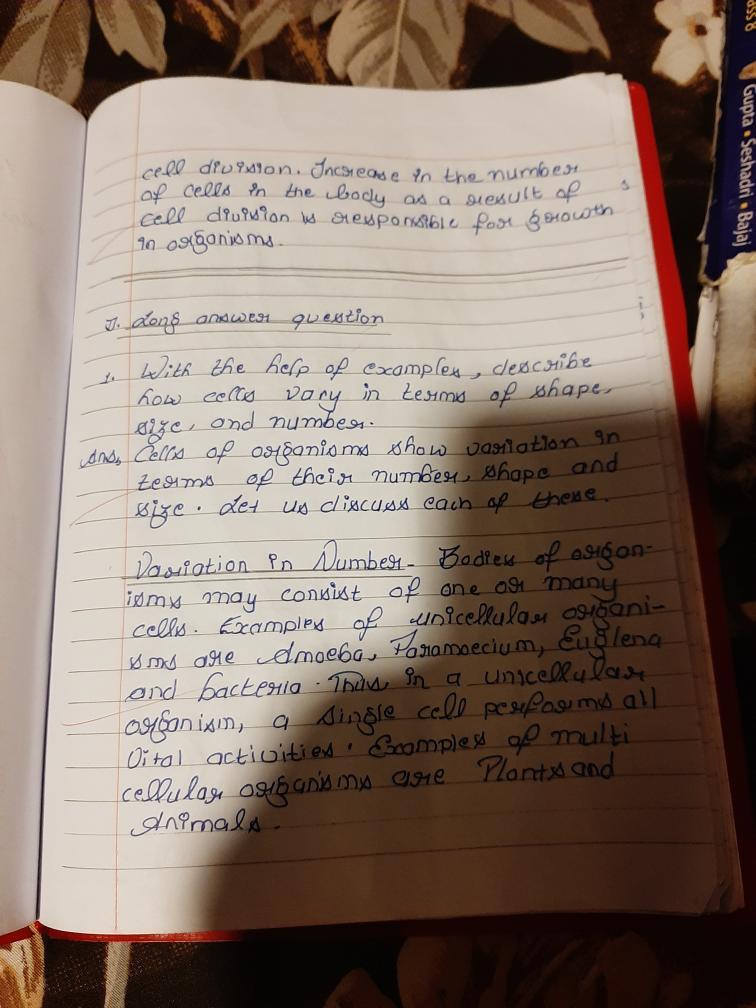 cell division. Increase in the number
of cells in the body as a result of
cell division is responsible for growth
in organisms.
J. Long answer question
1. With the help of examples, describe
how cells vary in terms of shape,
size, and number.
Ans, Cells of organisms show variation in
terms of their number, shape and
size. Let us discuss each of these.
Variation in Number- Bodies of organ-
isms may consist of one or many
cells. Examples of unicellular organi-
sms are Amoeba, Paramoecium, Euglena
and bacteria. Thus in a unicellular
organism, a single cell performs all
Vital activities. Examples of multi
cellular organisms are Plants and
Animals.
Gupta • Seshadri • Bajaj